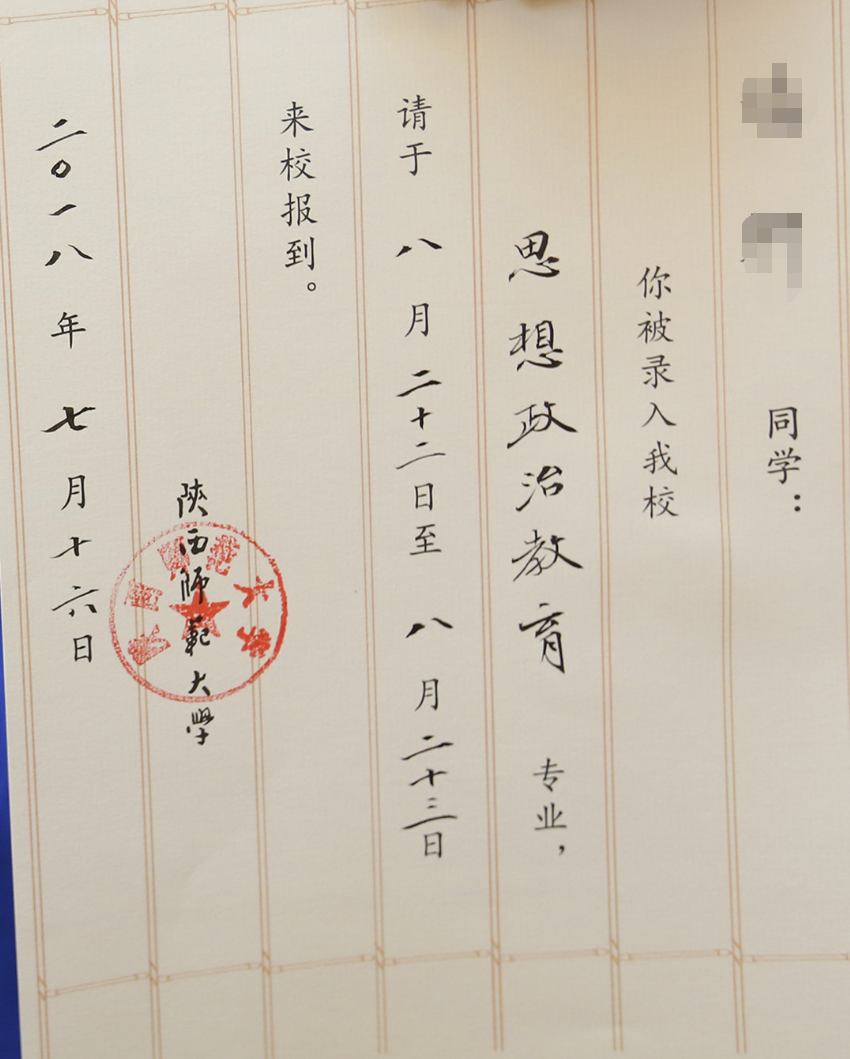 同学：
你被录入我校
思想政治教育 专业，
请于 八 月 二十二日至 八 月 二十三日
来校报到。
陕西師範大學
二〇一八 年 七 月 十六日